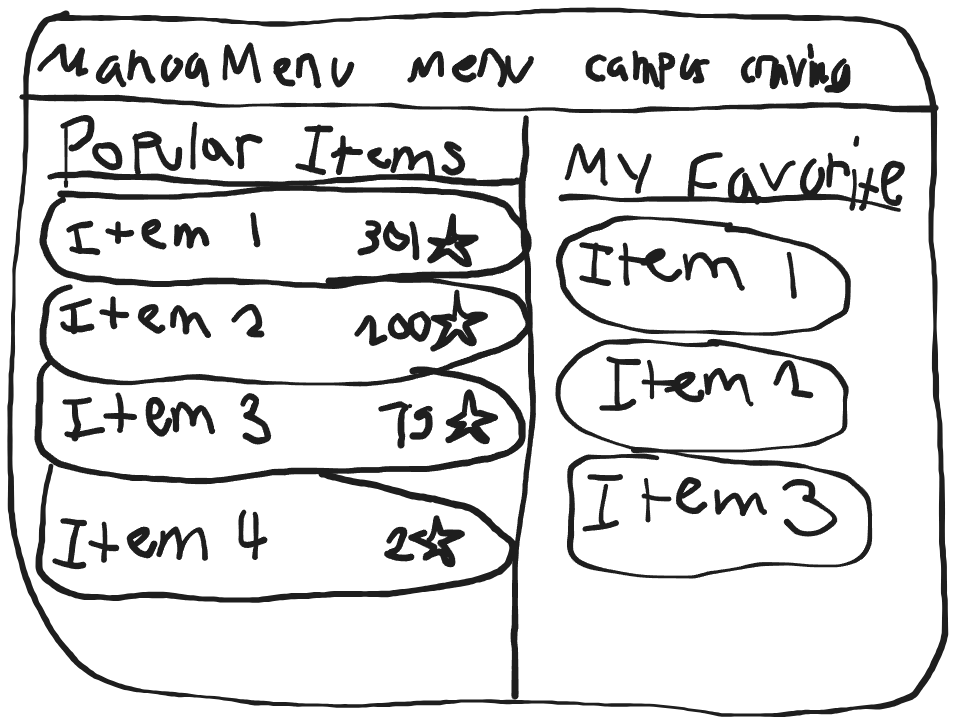 ManoaMenu menu campus craving
Popular Items
Item 1 301
Item 2 200
Item 3 75
Item 4 25
My Favorite
Item 1
Item 2
Item 3